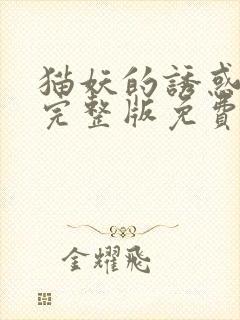 猫妖的誘惑
完整版免費
金耀飛